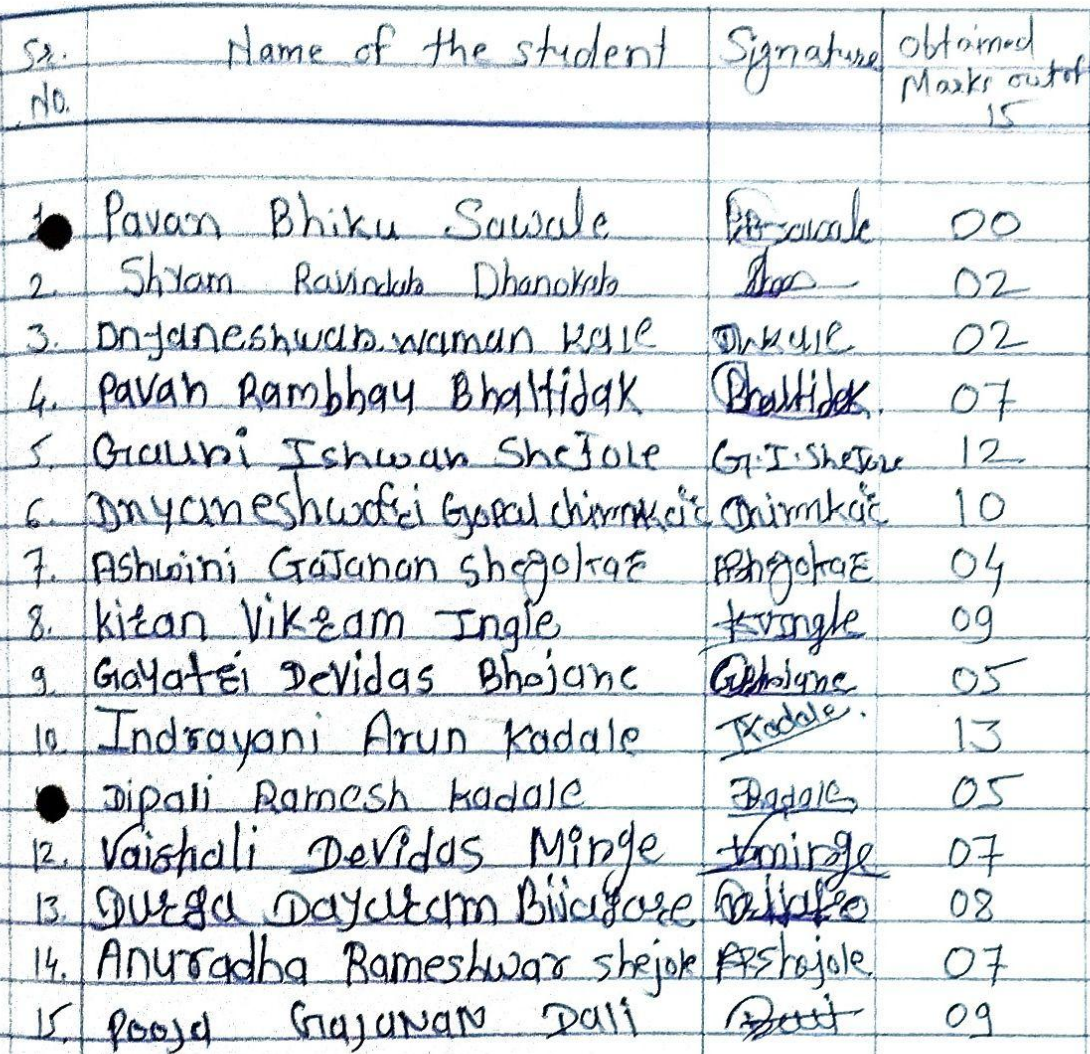 Sr. No. Name of the student Signature Obtained Marks out of 15
Pavan Bhiku Sawale PBSawale 00
2. Shyam Ravindra 02
3. Dnyaneshwar waman Kale DWKale 02
4. Pavan Rambhau Bhaltidak Bhaltidak. 07
5. Gauri Ishwar Shejole G.I.Shejole 12
6. Dnyaneshwari Gopal chimkar Chimkar 10
7. Ashwini Gajanan shegokar AShegokar 04
8. kiran Vikram Ingle KVIngle 09
9. Gayatri Devidas Bhojane GBhojane 05
10 Indrayani Arun Kadale IKadale. 13
Dipali Ramesh kadale 05
12. Vaishali Devidas Minge 07
13. Durga Dayaram Bijagare 08
14. Anuradha Rameshwar shejole ARShejole 07
15. Pooja GajaNaN Dali 09